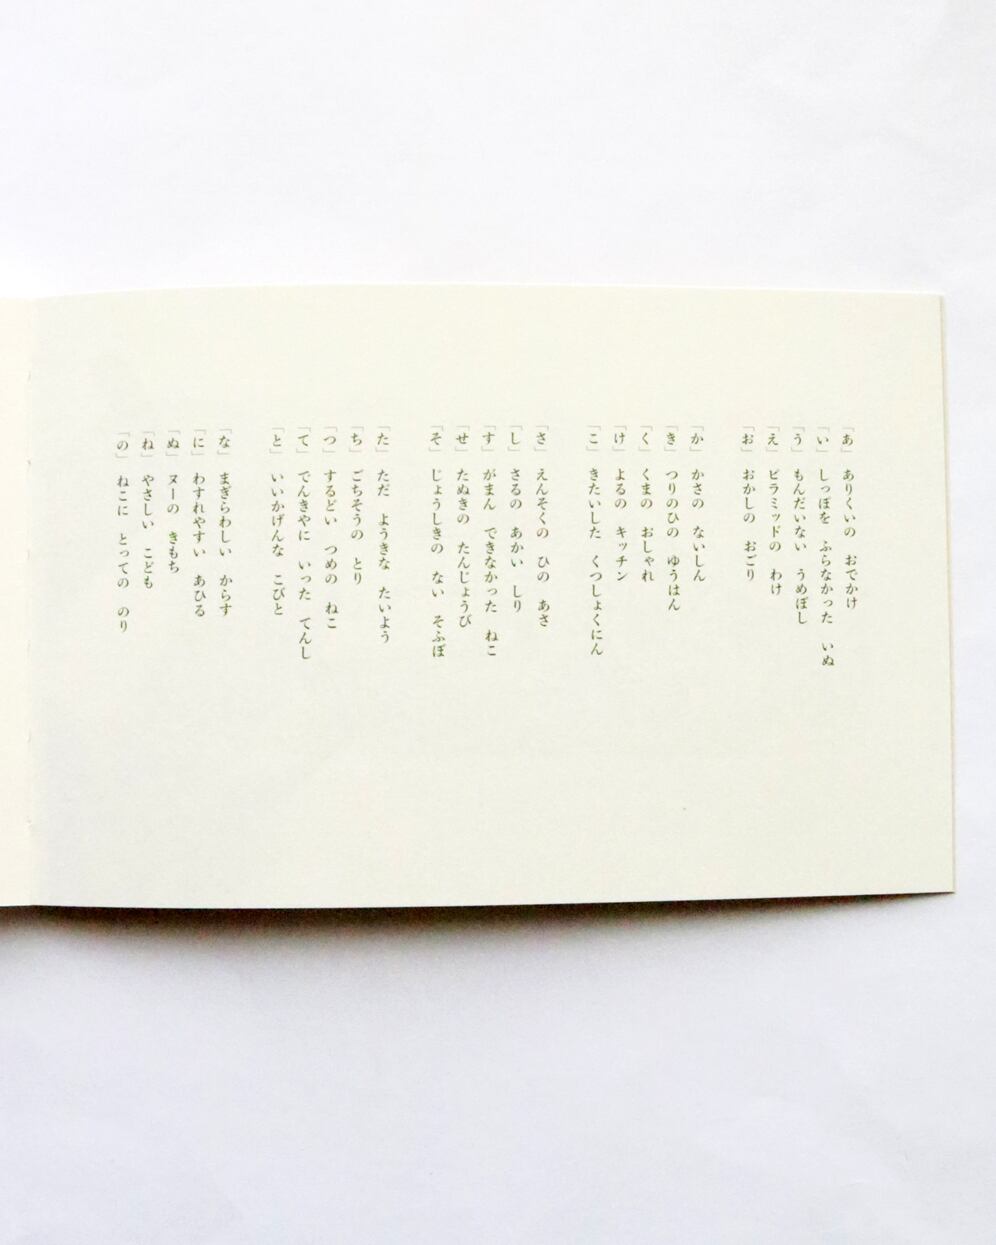 「あ」 ありくいの おでかけ
「い」 しっぽを ふらなかった いぬ
「う」 もんだいない うめぼし
「え」 ピラミッドの わけ
「お」 おかしの おごり
「か」 かさの ないしん
「き」 つりのひの ゆうはん
「く」 くまの おしゃれ
「け」 よるの キッチン
「こ」 きたいした くつしょくにん
「さ」 えんそくの ひの あさ
「し」 さるの あかい しり
「す」 がまん できなかった ねこ
「せ」 たぬきの たんじょうび
「そ」 じょうしきの ない そふぼ
「た」 ただ ようきな たいよう
「ち」 ごちそうの とり
「つ」 するどい つめの ねこ
「て」 でんきやに いった てんし
「と」 いいかげんな こびと
「な」 まぎらわしい からす
「に」 わすれやすい あひる
「ぬ」 ヌーの きもち
「ね」 やさしい こども
「の」 ねこに とっての のり